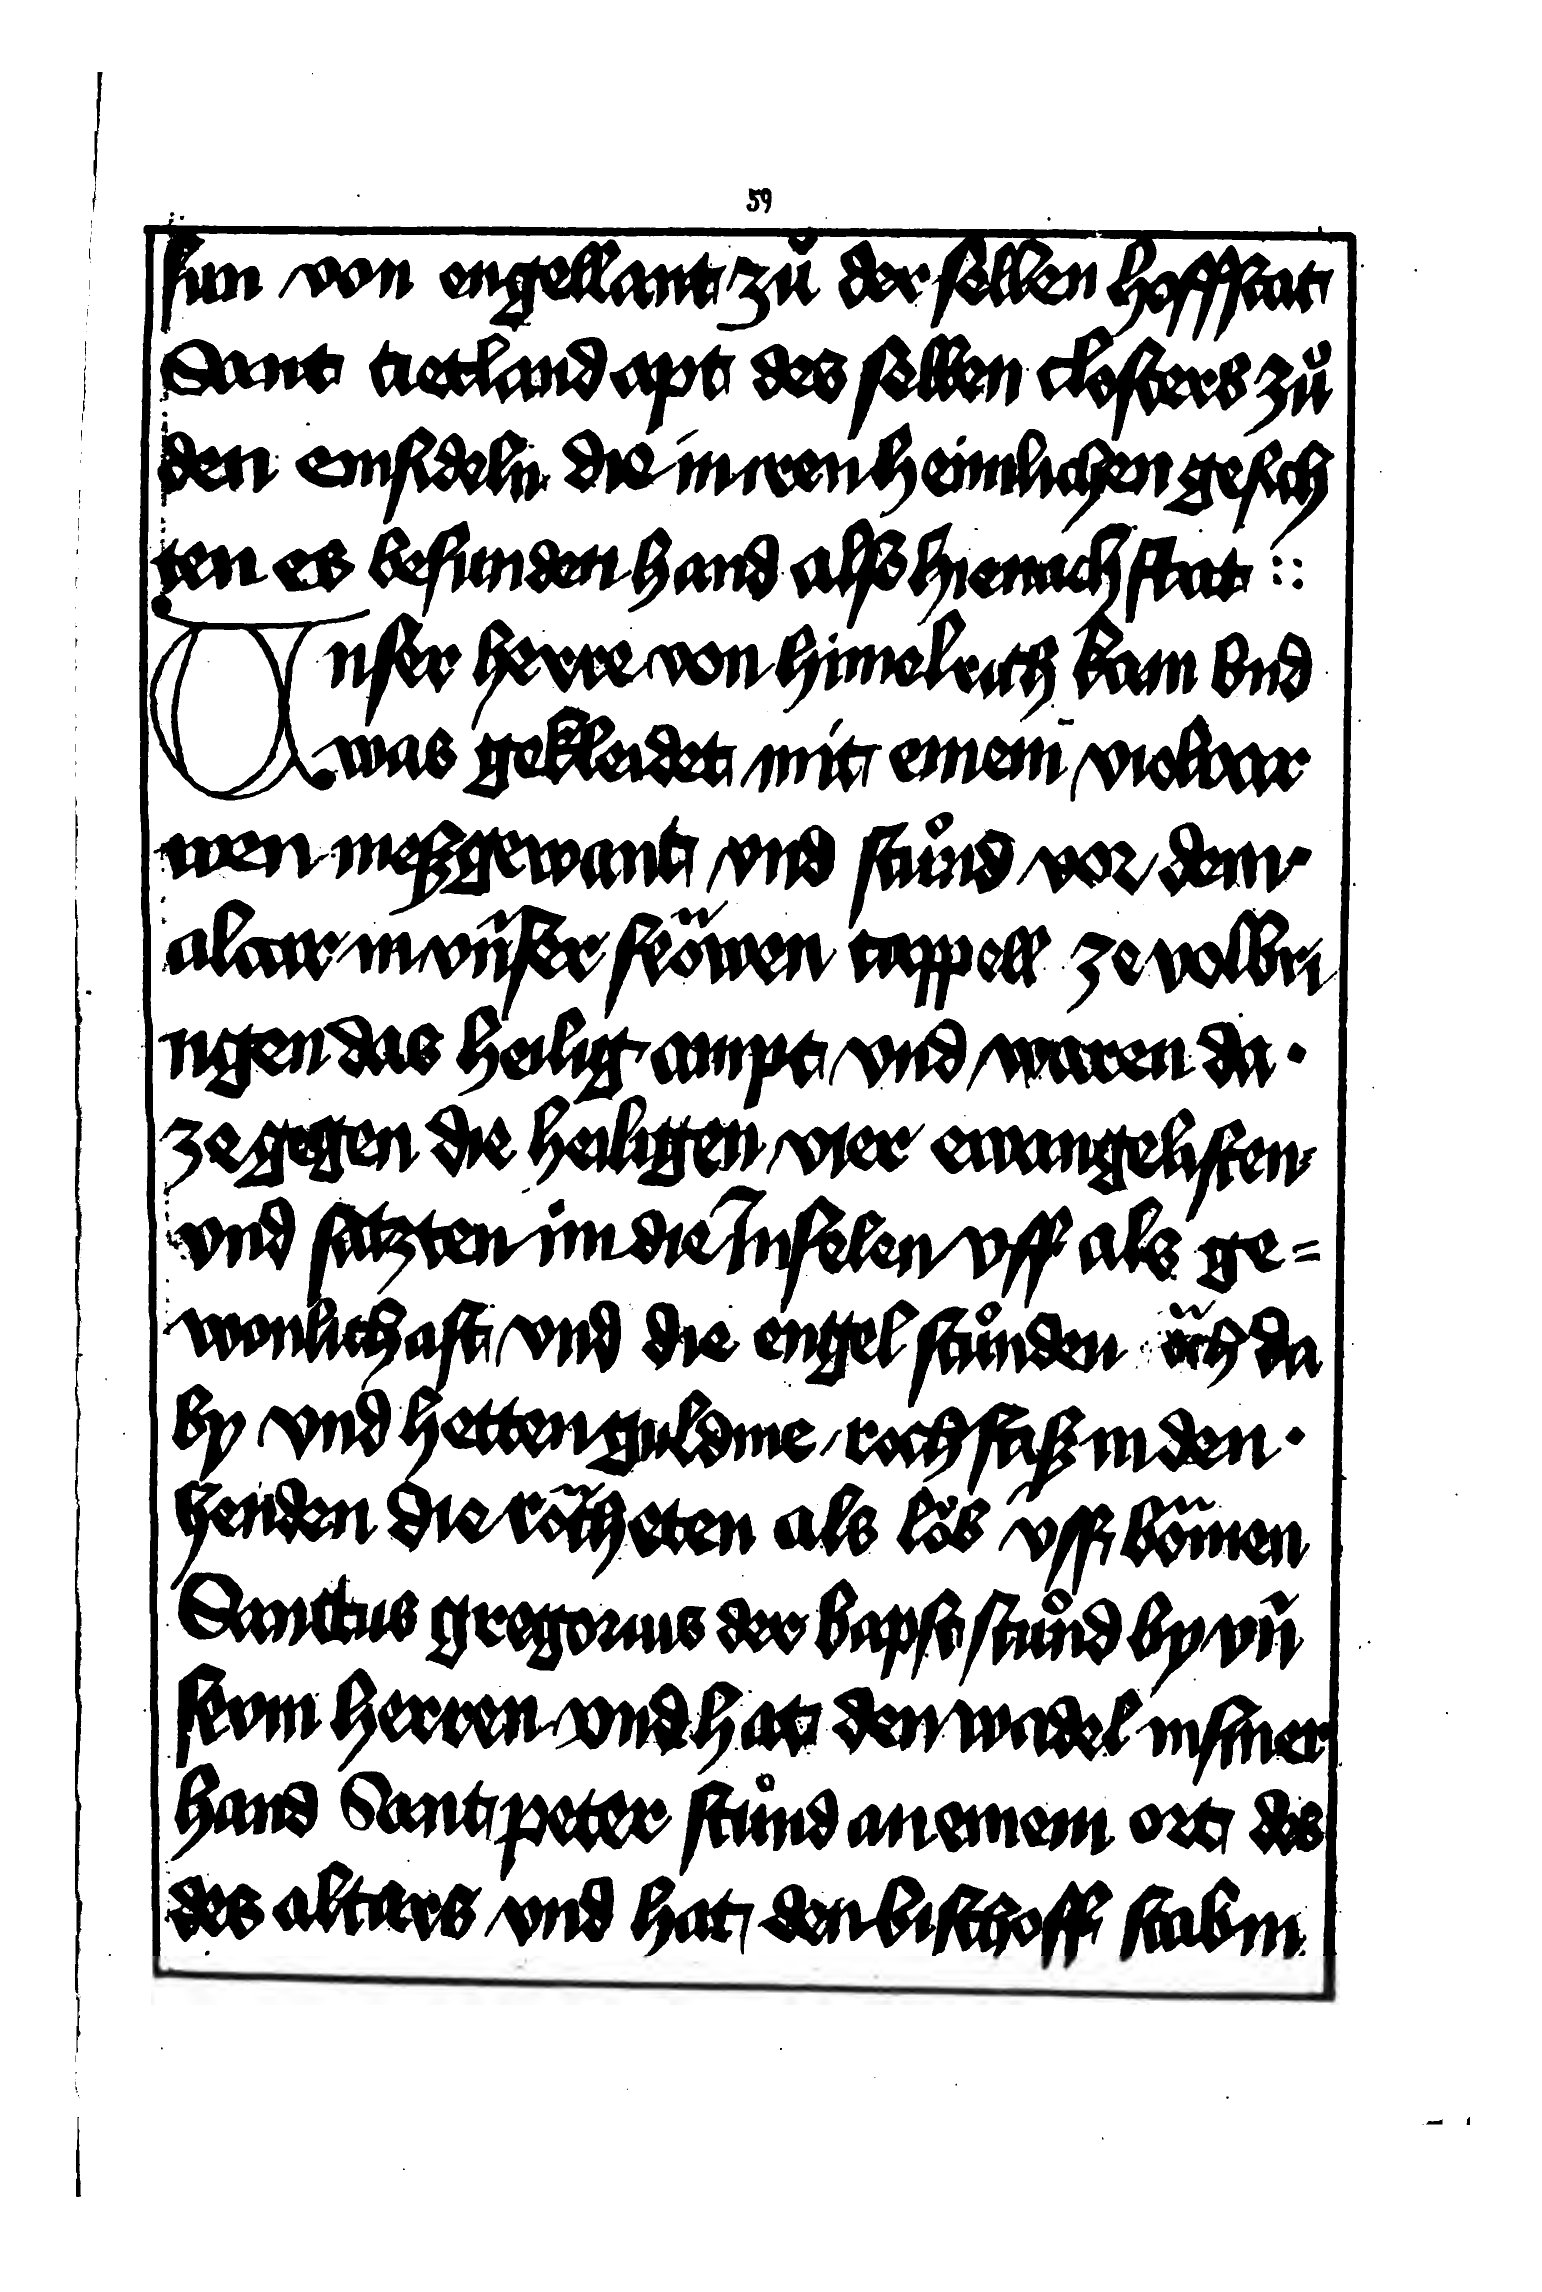 59
sun von engellant zů der selben hoffstat
Sant tietland apt des selben closters zů
den einsideln die in iren heimlichen gesich
ten es befunden hand alß hienach stat ::
Vnser herre von himelrich kam vnd
was gekleidet mit einem violvar
wen meßgewant vnd stůnd vor dem·
altar in vnser fröwen cappell ze volbri
ngen das heilig ampt vnd waren da·
ze gegen die heiligen vier ewangelisten
vnd satzten im die Infelen vff als ge=
wonlich ast vnd die engel stůnden öch da
by vnd hetten guldine roch faß in den·
henden die röcheten als löb vff bömen
Sanctus gregorius der bapst stůnd by vn̄
serm herren vnd hat den wadel in siner
hand Sant peter stůnd an einem ort des
des altars vnd hat den bischoff stab in